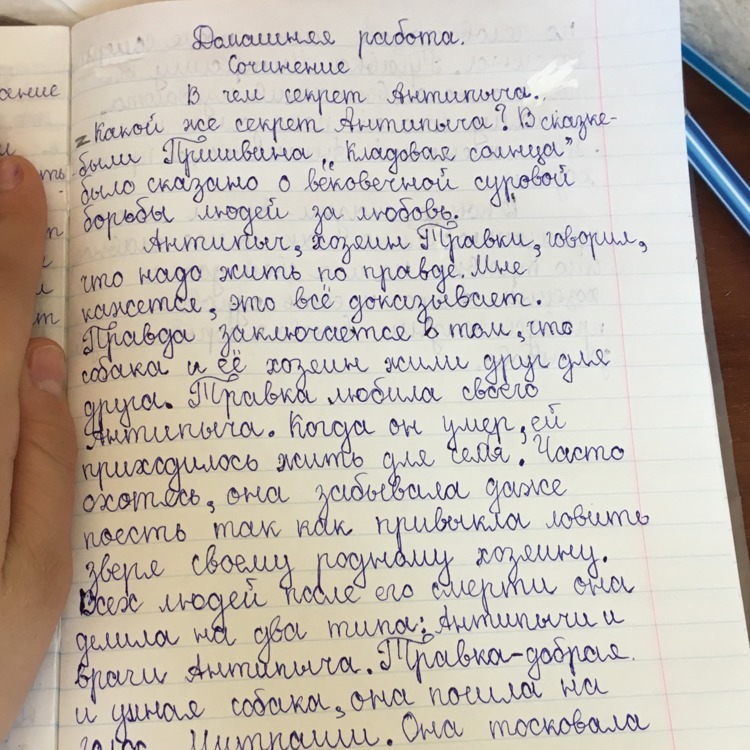 Домашняя работа.
Сочинение
В чем секрет Антипыча.
Какой же секрет Антипыча? В сказке-
были Пришвина „Кладовая солнца"
было сказано о вековечной суровой
борьбы людей за любовь.
Антипыч, хозеин Травки, говорил,
что надо жить по правде. Мне
кажется, это всё доказывает.
Правда заключается в том, что
собака и её хозеин жили друг для
друга. Травка любила своего
Антипыча. Когда он умер, ей
приходилось жить для семя. Часто
охотясь, она забывала даже
поесть так как привыкла ловить
зверя своему родному хозеину.
Всех людей после его смерти она
делила на два типа: Антипычи и
врачи Антипыча. Травка-добрая
и умная собака, она пошла на
голос Митраши. Она тосковала
ание
ть